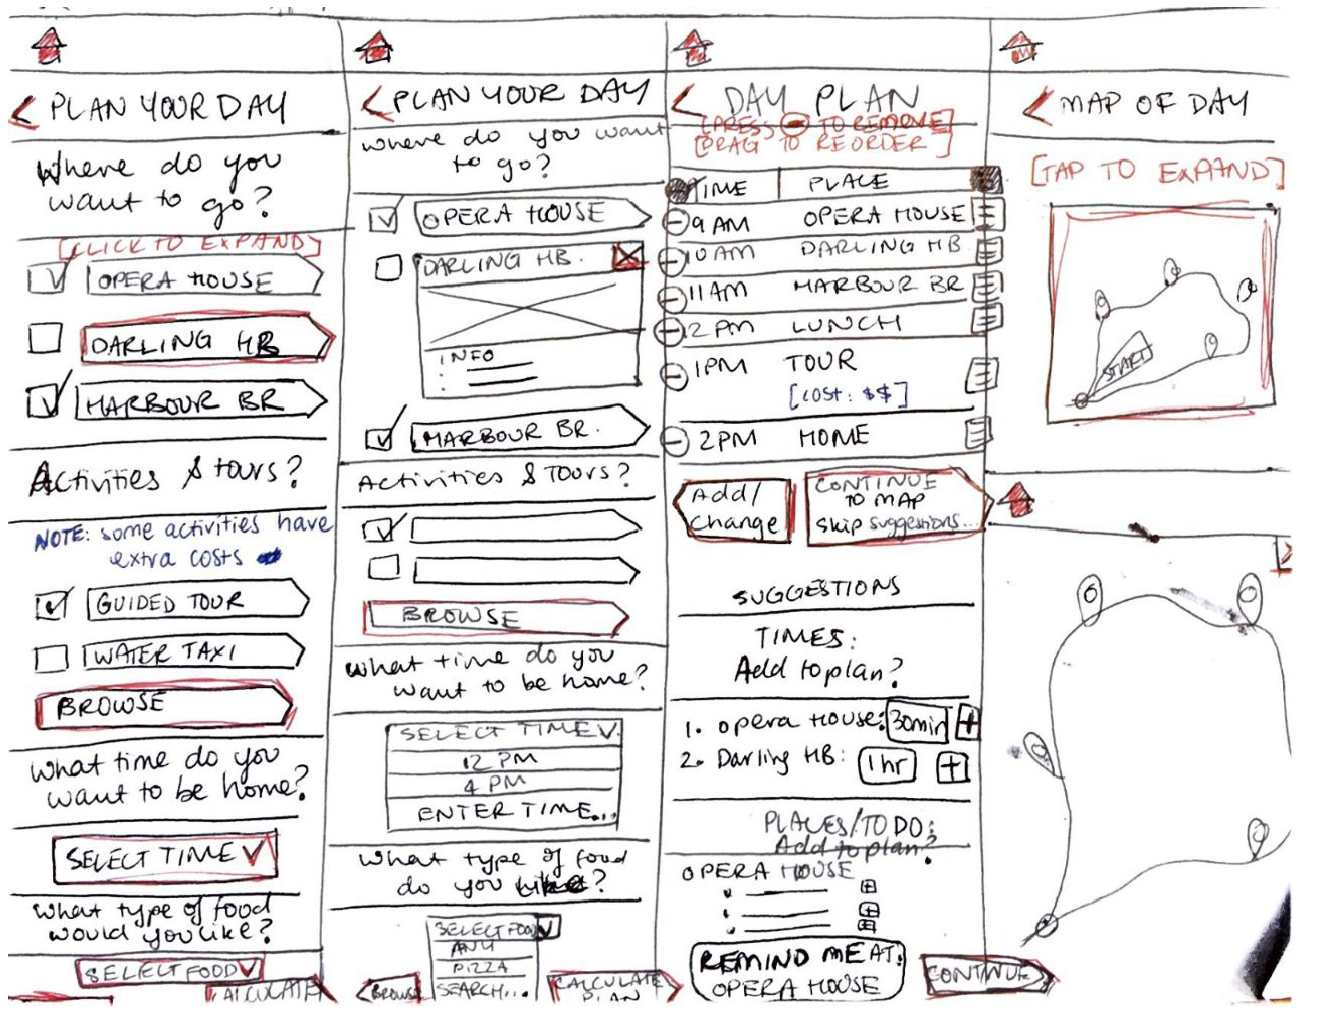 PLAN YOUR DAY
Where do you
want to go?
[CLICK TO EXPAND]
OPERA HOUSE
DARLING HB
HARBOUR BR
Activities & tours?
NOTE: some activities have
extra costs
GUIDED TOUR
WATER TAXI
BROWSE
What time do you
want to be home?
SELECT TIME
What type of food
would you like?
SELECT FOOD
CALCULATE
PLAN YOUR DAY
where do you want
to go?
OPERA HOUSE
DARLING HB.
INFO
HARBOUR BR.
Activities & TOURS?
BROWSE
What time do you
want to be home?
SELECT TIME
12 PM
4 PM
ENTER TIME...
What type of food
do you like?
SELECT FOOD
ANY
PIZZA
SEARCH...
BROWSE
CALCULATE
PLAN
DAY PLAN
[PRESS - TO REMOVE]
[DRAG TO REORDER]
TIME PLACE
9AM OPERA HOUSE
10AM DARLING HB
11AM HARBOUR BR
12PM LUNCH
1PM TOUR
[COST: $$]
2PM HOME
Add/
Change
CONTINUE
TO MAP
Skip suggestions...
SUGGESTIONS
TIMES:
Add to plan?
1. Opera House: 30min +
2. Darling HB: 1hr +
PLACES/TO DO:
Add to plan?
OPERA HOUSE
REMIND ME AT:
OPERA HOUSE
CONTINUE
MAP OF DAY
[TAP TO EXPAND]
START